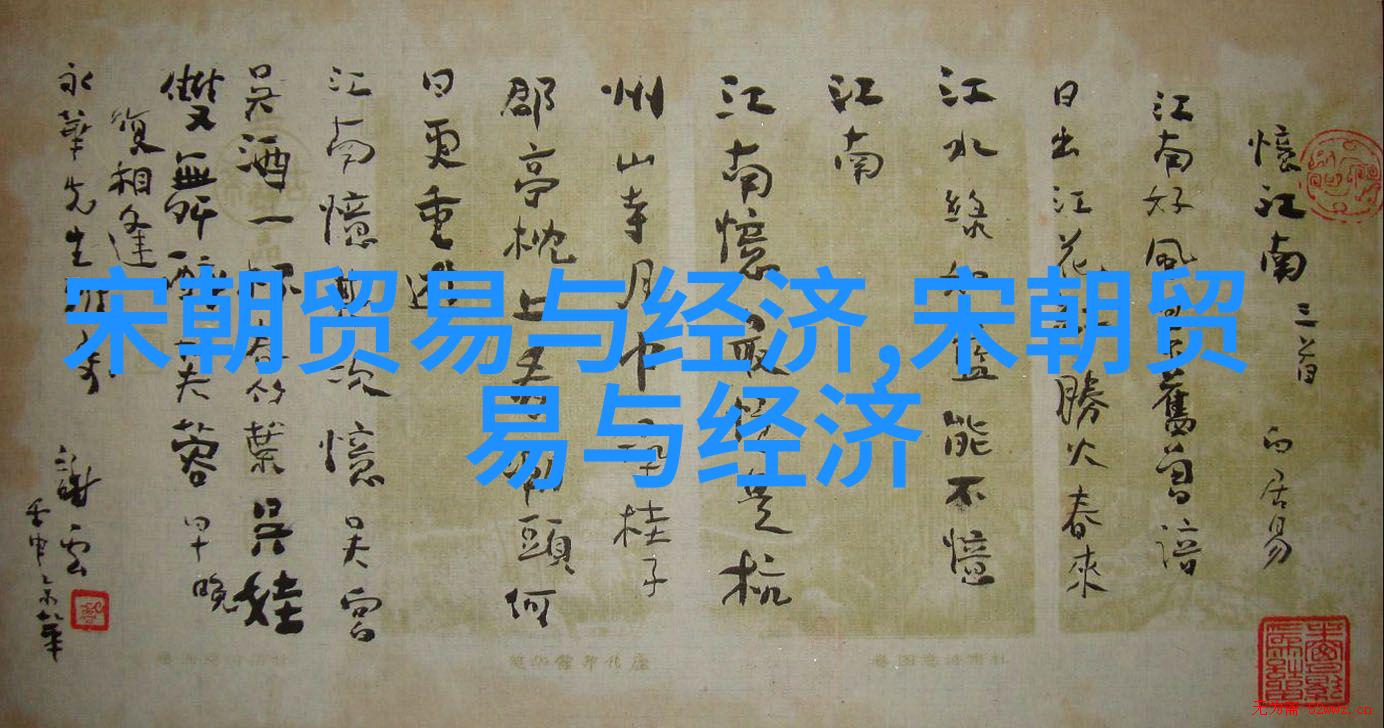 憶江南 三首 白居易
江南好風景舊曾諳
日出江花紅勝火春來
江水綠如藍能不憶
江南
江南憶最憶是杭
州山寺月中尋桂子
郡亭枕上看潮頭何
日更重遊
江南憶其次憶吳宮
吳酒一杯春竹葉吳娃
雙舞醉芙蓉早晚
復相逢
永華先生
謝雲
宋朝贸易与经济,宋朝贸
易与经济
无为斋 52wwz.cn